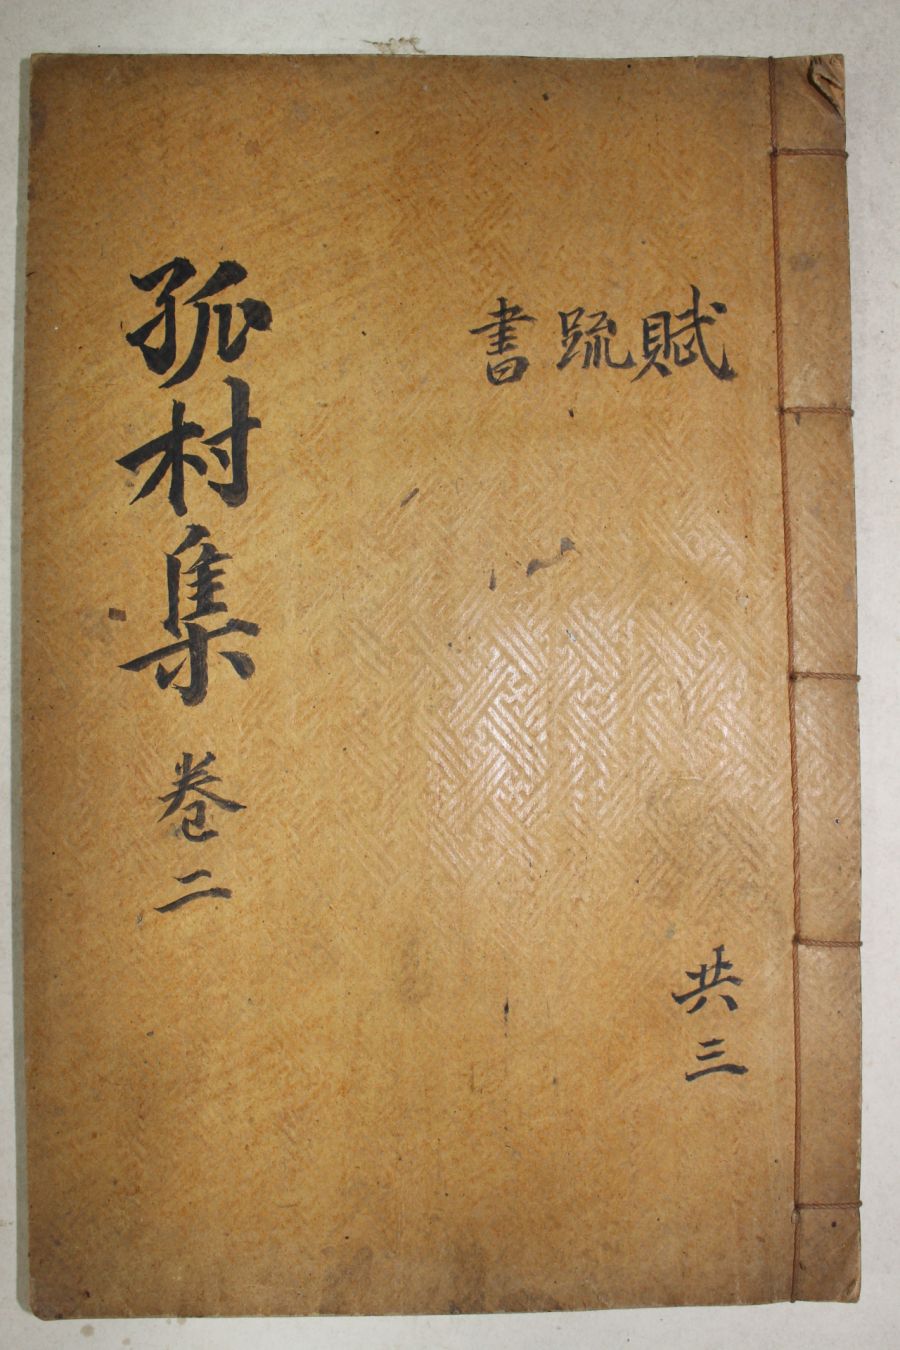 孤村集 卷二
賦 疏 書
共三